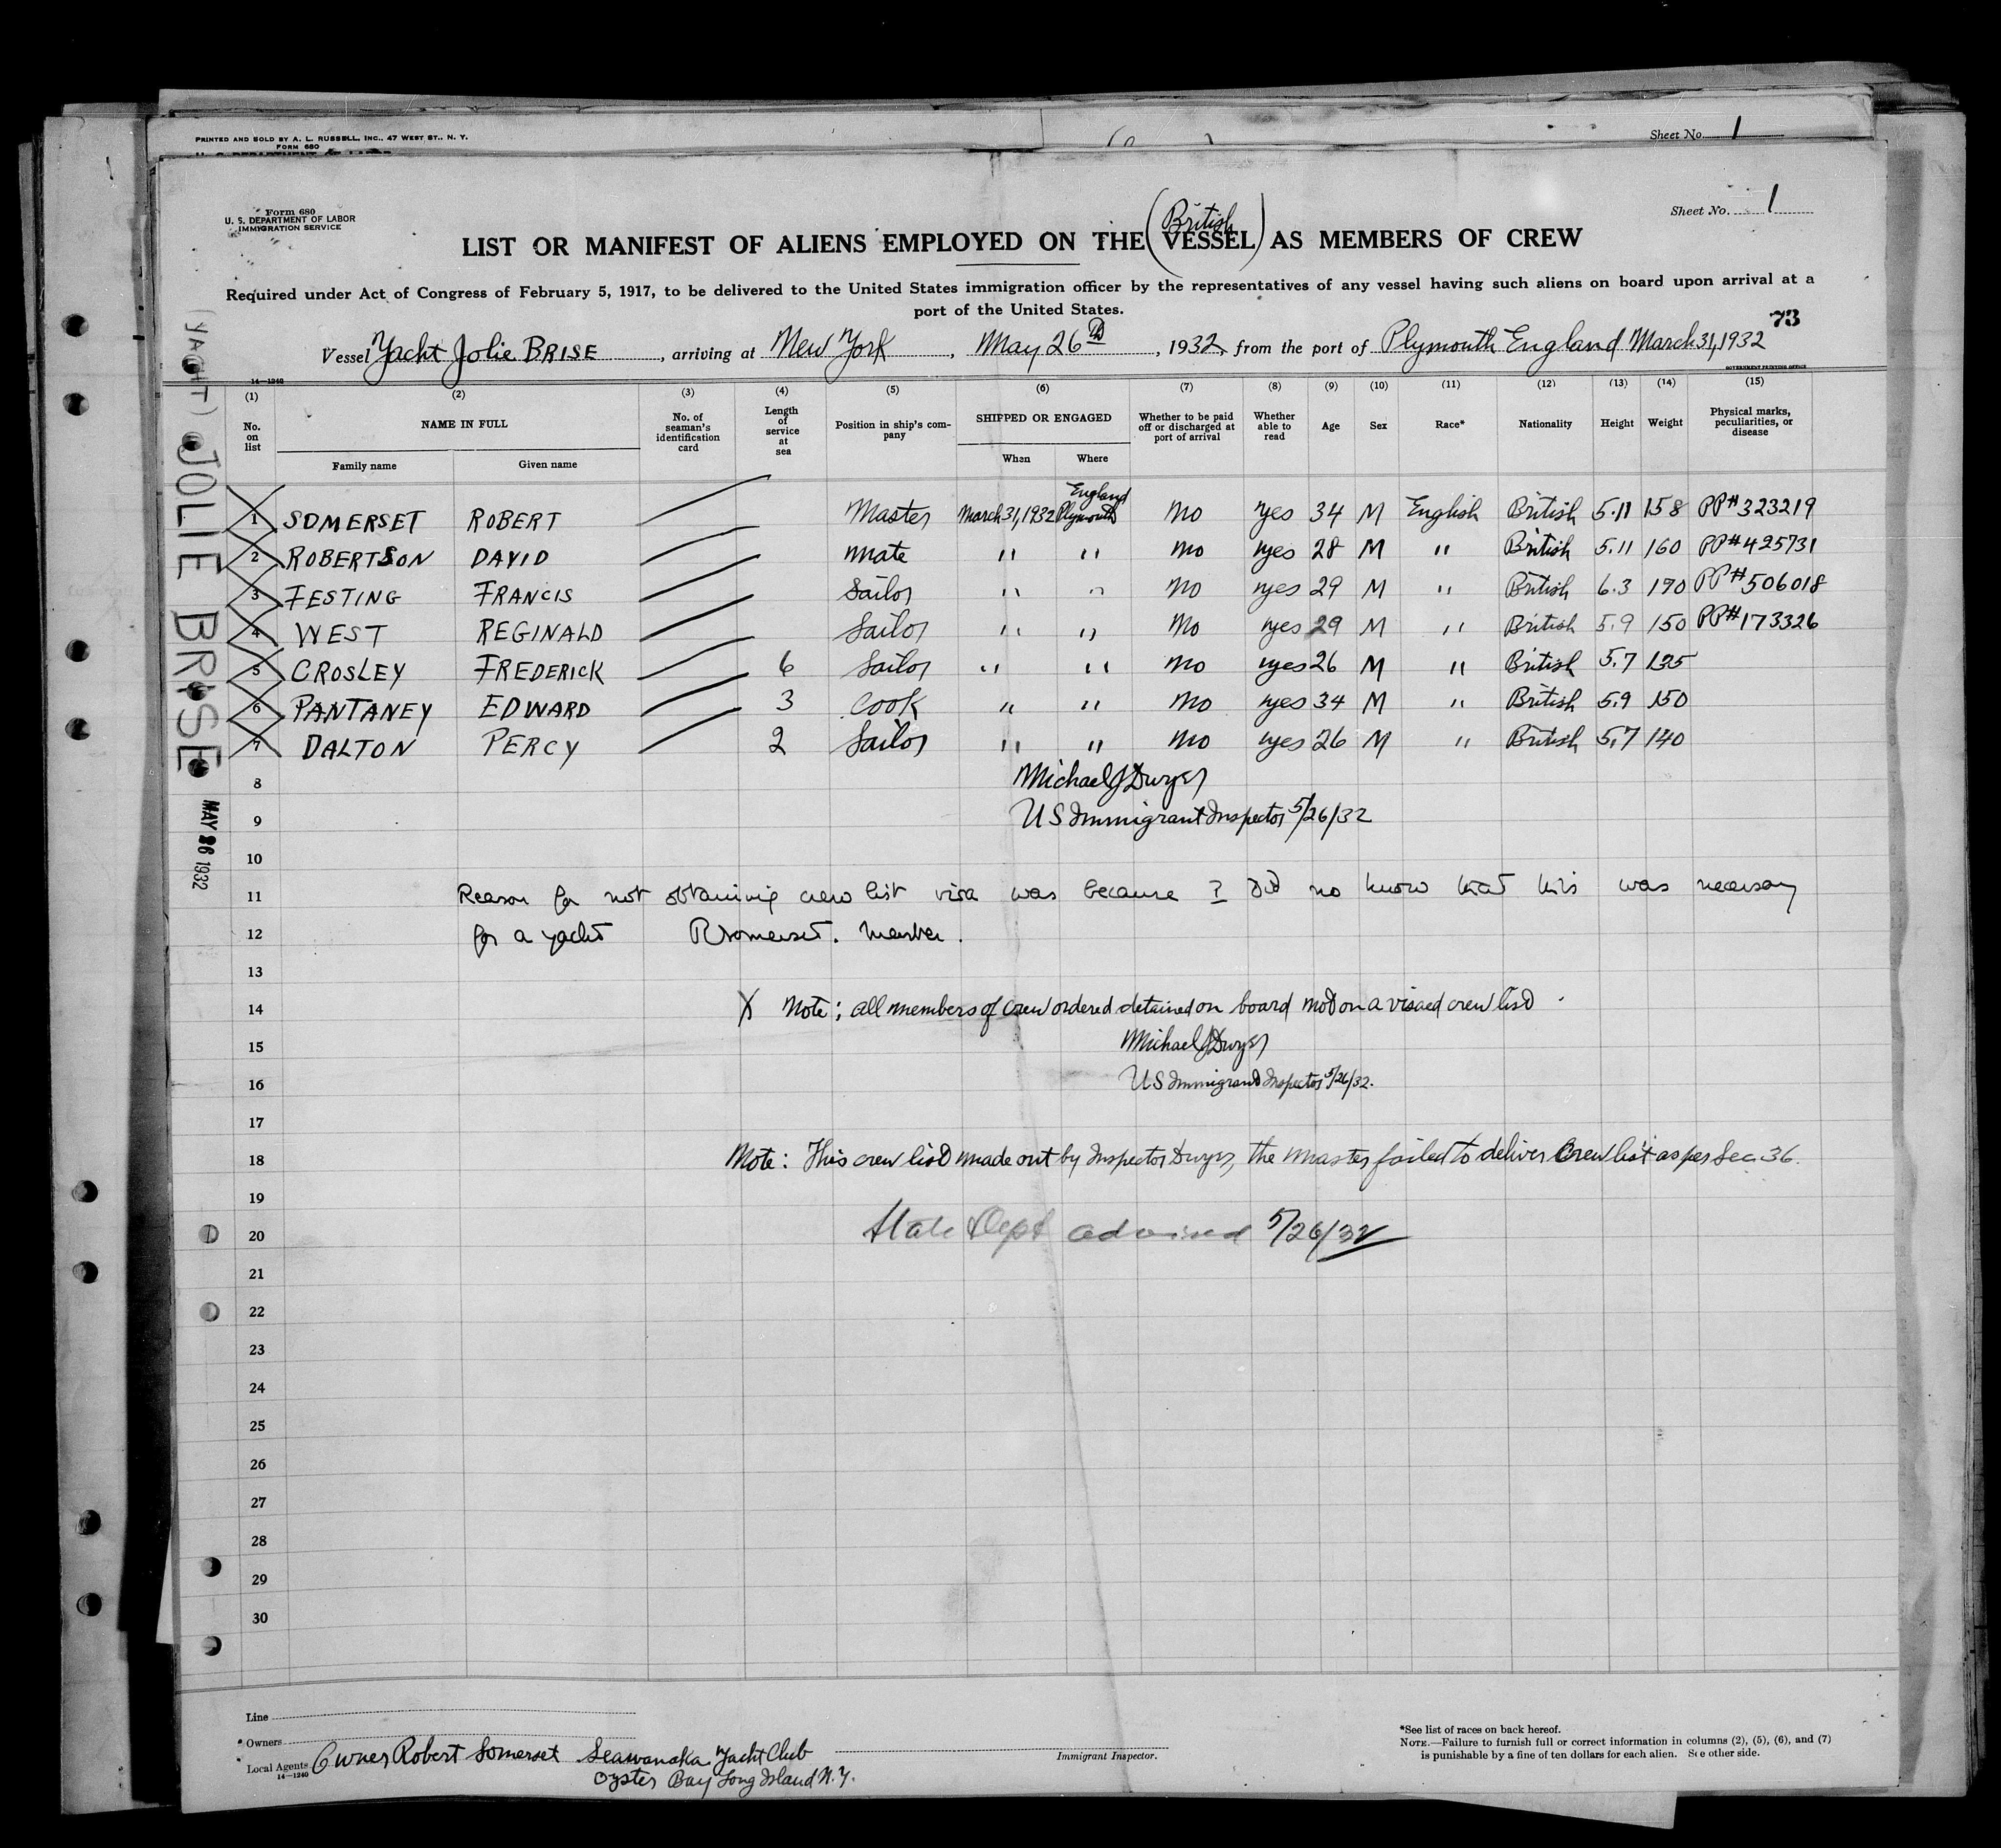 PRINTED AND SOLD BY A. L. RUSSELL, INC., 47 WEST ST., N. Y.
FORM 680
Sheet No. 1
Form 680
U. S. DEPARTMENT OF LABOR
IMMIGRATION SERVICE
Sheet No. 1
British
LIST OR MANIFEST OF ALIENS EMPLOYED ON THE (VESSEL) AS MEMBERS OF CREW
Required under Act of Congress of February 5, 1917, to be delivered to the United States immigration officer by the representatives of any vessel having such aliens on board upon arrival at a
port of the United States.
73
Vessel Yacht Jolie BRISE, arriving at New York, May 26th, 1932, from the port of Plymouth England March 31, 1932
14—1240
GOVERNMENT PRINTING OFFICE
(YACHT) JOLIE BRISE MAY 26 1932
(1) (2) (3) (4) (5) (6) (7) (8) (9) (10) (11) (12) (13) (14) (15)
No. on list
NAME IN FULL
Family name Given name
No. of seaman's identification card
Length of service at sea
Position in ship's company
SHIPPED OR ENGAGED
When Where
Whether to be paid off or discharged at port of arrival
Whether able to read
Age Sex Race* Nationality Height Weight
Physical marks, peculiarities, or disease
1 SOMERSET ROBERT Master March 31, 1932 England Plymouth No yes 34 M English British 5.11 158 PP# 323219
2 ROBERTSON DAVID Mate " " No yes 28 M " British 5.11 160 PP# 425731
3 FESTING FRANCIS Sailor " " No yes 29 M " British 6.3 190 PP# 506018
4 WEST REGINALD Sailor " " No yes 29 M " British 5.9 150 PP# 173326
5 CROSLEY FREDERICK 6 Sailor " " No yes 26 M " British 5.7 135
6 PANTANEY EDWARD 3 Cook " " No yes 34 M " British 5.9 150
7 DALTON PERCY 2 Sailor " " No yes 26 M " British 5.7 140
8 Michael J Dwyer
9 US Immigrant Inspector 5/26/32
10
11 Reason for not obtaining crew list visa was because I did no know that this was necessary
12 for a yacht RSomerset.
13
14 X Note; all members of crew ordered detained on board not on a visaed crew list
15 Michael J Dwyer
16 US Immigrant Inspector 5/26/32.
17
18 Note: This crew list made out by Inspector Dwyer, the Master failed to deliver Crew list as per Sec 36.
19
20 State Dept advised 5/26/32
21
22
23
24
25
26
27
28
29
30
Line
Owners
Local Agents Owner Robert Somerset Seawanaka Yacht Club
14—1240
Oyster Bay Long Island N.Y.
Immigrant Inspector.
*See list of races on back hereof.
NOTE.—Failure to furnish full or correct information in columns (2), (5), (6), and (7)
is punishable by a fine of ten dollars for each alien. See other side.